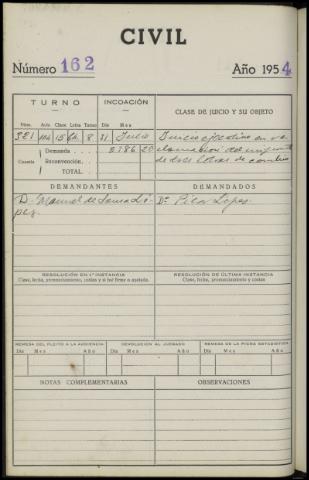 CIVIL
Número 162
Año 1954
TURNO
INCOACIÓN
CLASE DE JUICIO Y SU OBJETO
Núm. Auto Clase Letra Tomo Día Mes
321 8 31 Julio
Juicio ejecutivo en re
clamación del importe
de dos letras de cambio
Cuantía
Demanda 3186 20
Reconvención
TOTAL
DEMANDANTES
DEMANDADOS
D. Manuel de Sousa Ló-
pez.
Dª Pilar Lopes.
RESOLUCIÓN EN 1ª INSTANCIA
Clase, fecha, pronunciamiento, costas y si fué firme o apelada.
RESOLUCIÓN DE ÚLTIMA INSTANCIA
Clase, fecha, pronunciamiento y costas
REMESA DEL PLEITO A LA AUDIENCIA
DEVOLUCIÓN AL JUZGADO
REMESA DE LA FICHA ESTADÍSTICA
Día Mes Año
Día Mes Año
Día Mes Año
NOTAS COMPLEMENTARIAS
OBSERVACIONES